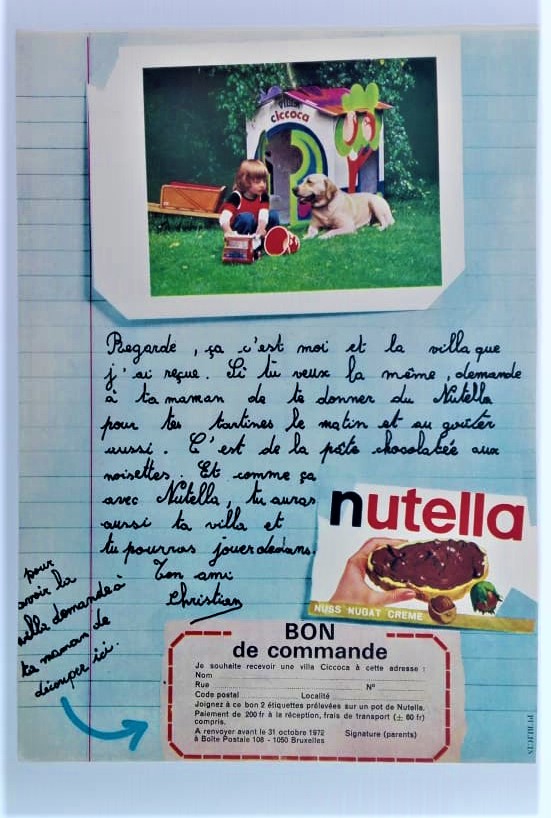 VILLA
ciccoca
Regarde, ça c'est moi et la villa que
j'ai reçue. Si tu veux la même, demande
à ta maman de te donner du Nutella
pour tes tartines le matin et au goûter
aussi. C'est de la pâte chocolatée aux
noisettes. Et comme ça
avec Nutella, tu auras
aussi ta villa et
tu pourras jouer dedans.
Ton ami
Christian
nutella
NUSS NUGAT CREME
pour
avoir la
villa demande à
ta maman de
découper ici.
BON
de commande
Je souhaite recevoir une villa Ciccoca à cette adresse :
Nom
Rue N°
Code postal Localité
Joignez à ce bon 2 étiquettes prélevées sur un pot de Nutella.
Paiement de 200 fr à la réception, frais de transport (± 60 fr)
compris.
A renvoyer avant le 31 octobre 1972 Signature (parents)
à Boîte Postale 108 - 1050 Bruxelles
PUBLICIS